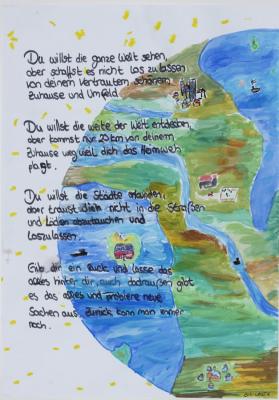 Du willst die ganze Welt sehen,
aber schaffst es nicht los zu lassen
von deinem Vertrautem schönem
Zuhause und Umfeld.
Du willst die weite der Welt entdecken,
aber kommst nur 20 km von deinem
Zuhause weg weil dich das Heimweh
plagt.
Du willst die Städte erkunden,
aber traust dich nicht in die Straßen
und Läden abzutauchen und
loszulassen.
Gib dir ein Ruck und lasse das
alles hinter dir, auch dadraußen gibt
es das alles und probiere neue
Sachen aus, zurück kann man immer
noch.